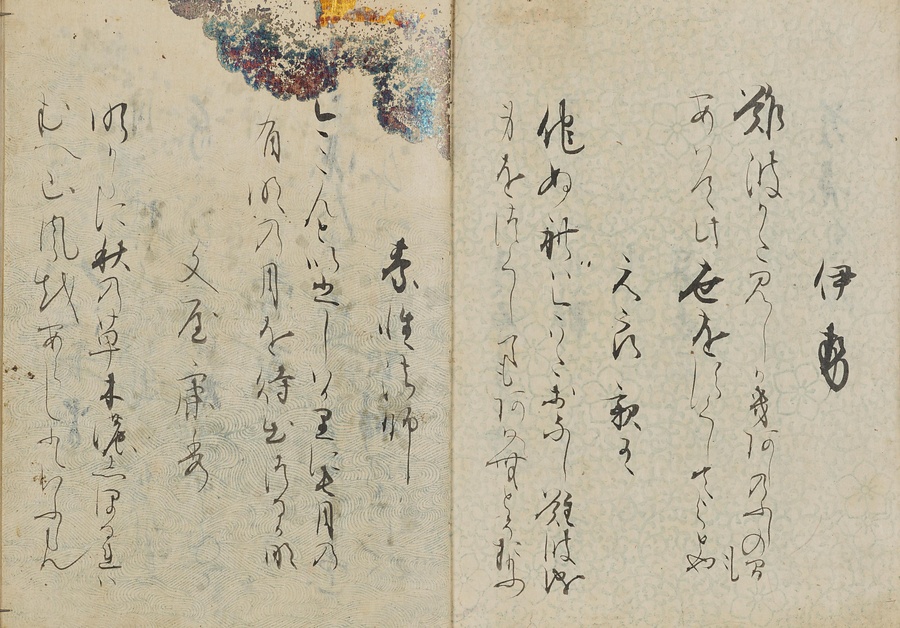 伊勢
難波かたみしかき芦のふしの間も
あはて此世を過くしてよとや
元良親王
侘ぬれはいまはたおなし難波なる
身をつくしてもあはむとそおもふ
素性法師
今こんといひしはかりに長月の
有明の月を待出つるかな
文屋康秀
吹からに秋の草木のしほるれは
むへ山風をあらしといふらん